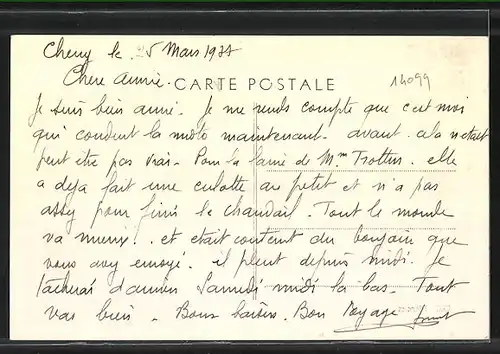 Cheny le 25 Mars 19
Chère amie. CARTE POSTALE 14099
Je suis bien arrivé. Je me rends compte que c'est moi
qui conduit la moto maintenant. avant cela n'était
peut être pas vrai. Pour la laine de Mme Trottin. elle
a deja fait une culotte au petit et n'a pas
assez pour finir le chandail. Tout le monde
va mieux.. et etait content du que
vous avez envoyé. il pleut depuis midi. Je
tacherai d'arriver Samedi midi la bas. Tout
va bien. Bons baisers. Bon Voyage